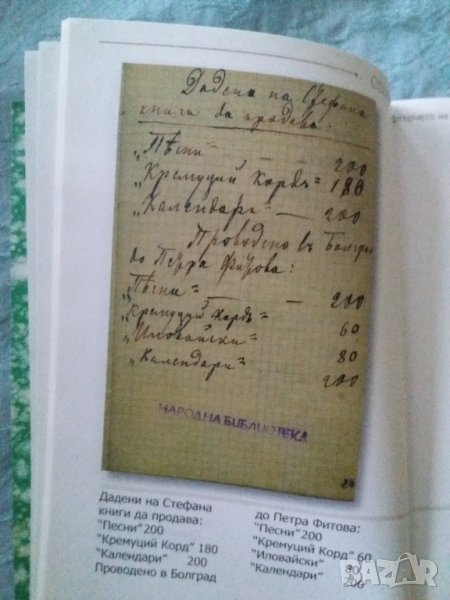 Дадени на Стефана
книги да продава:
„Пѣсни“ — — 200
„Кремуций Кордъ“ = 180
„Календари“ — 200
Проводено въ Болград
до Петра Фитова:
„Пѣсни“ — — 200
„Кремуций Кордъ“ 60
„Иловайски“ 80
„Календари“ 200
НАРОДНА БИБЛИОТЕКА
Дадени на Стефана
книги да продава:
"Песни"200
"Кремуций Корд" 180
"Календари" 200
Проводено в Болград
до Петра Фитова:
"Песни"200
"Кремуций Корд" 60
"Иловайски"
"Календари"
BAZAR